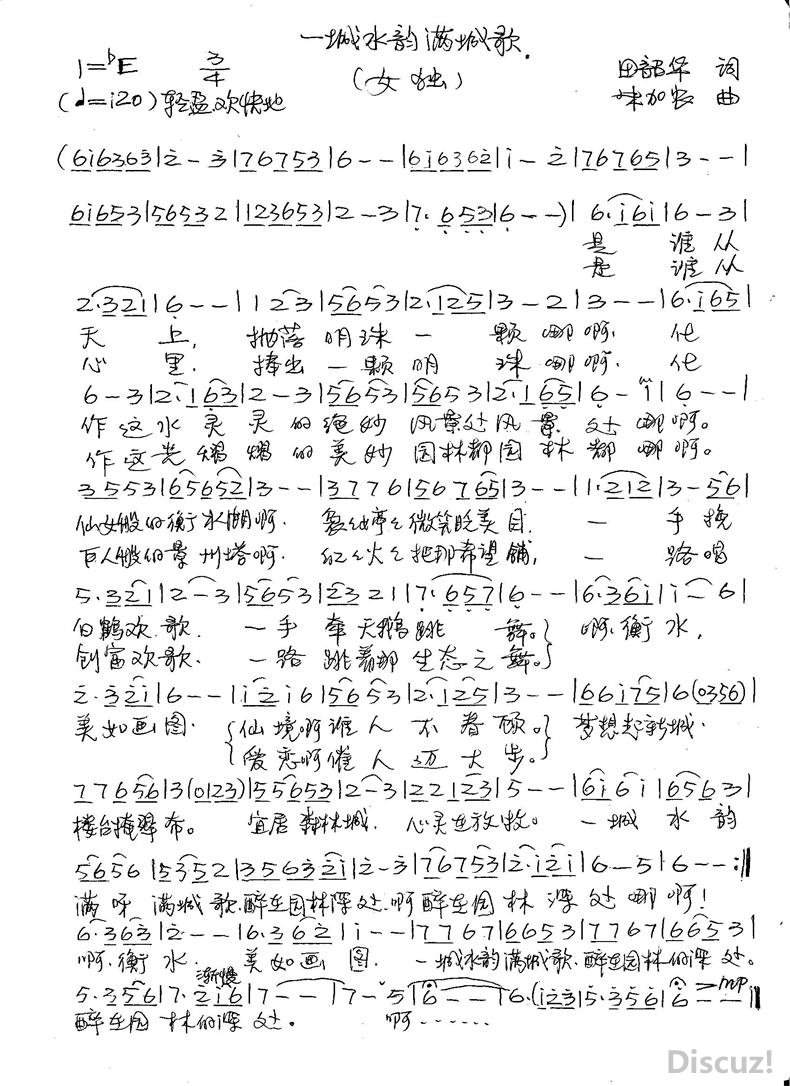 一城水韵满城歌
1=♭E 3/4 (女独) 田韶华 词
(♩=120) 轻盈欢快地 加农 曲
(6i6363|2-3|76753|6--|6i6362|i-2|76765|3--|
6i653|56532|123653|2-3|7·653|6--)|6·i6i|6-3|
是 谁从
是 谁从
2·321|6--|123|5653|2·125|3-2|3--|6·i65|
天 上, 抛落明珠一 颗哪啊. 化
心 里. 捧出一颗明 珠哪啊. 化
6-3|2·163|2-3|5653|5653|2·165|6-i|6--|
作这水灵灵的绝妙风景处风景处哪啊。
作这光熠熠的美妙园林都园林都哪啊。
3553|65652|3--|3776|56765|3--|1·212|3-56|
仙女般的衡水湖啊. 袅袅婷婷微笑眨美目. 一 手挽
巨人般的景州塔啊. 红红火火把那希望铺, 一 路唱
5·321|2-3|5653|2321|7·657|6--|6·36i|i-6|
白鹤欢歌. 一手牵天鹅跳 舞。} 啊.衡水,
创富欢歌. 一路跳着那生态之舞。}
2·32i|6--|i2i6|5653|2·125|3--|66i75|6(0356)|
美如画图. {仙境啊谁人不眷顾。} 梦想起新城.
{爱恋啊催人迈大步。}
77656|3(0123)|55653|2-3|22123|5--|6i6i|6563|
楼台掩翠布。 宜居森林城. 心灵在放牧。 一城水韵
5656|5352|35632i|2-3|76753|2·i2i|6-5|6--:‖
满呀满城歌.醉在园林深处.啊醉在园林深处哪啊!
6·363|2--|6·362|i--|7767|6653|7767|6653|
啊.衡水. 美如画图. 一城水韵满城歌.醉在园林的深处.
渐慢
5·356|7·2i6|7--|7-5|6--|6·(i23|5·356|6-- mp‖
醉在园林的深处。 啊……
Discuz!